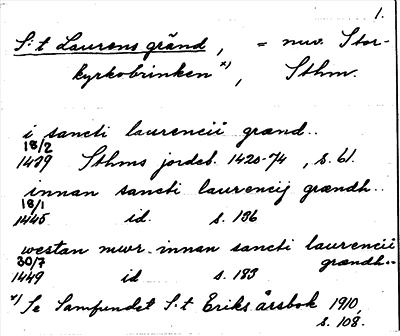 1.
S:t Laurens gränd, = nuv. Stor-
kyrkobrinken *), Sthm.
i sancti laurencii grand..
18/2
1429 Sthms jordeb. 1420-74, s. 61.
innan sancti laurencij grændh..
18/1
1445 id. s. 156
westan mwr innan sancti laurencii
grændh..
30/7
1449 id s. 183
*) Se Samfundet S:t Eriks årsbok 1910,
s. 108.